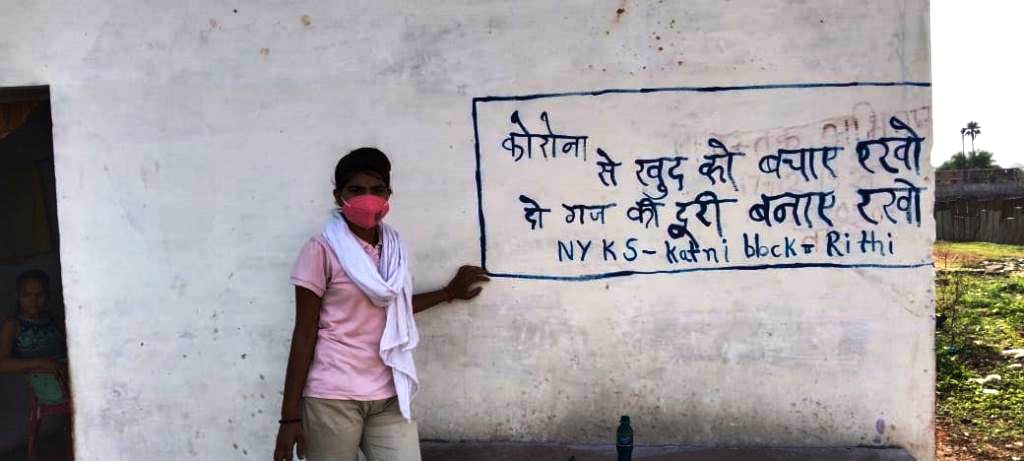 कोरोना
से खुद को बचाए रखो
दो गज की दूरी बनाए रखो
NYKS- Katni block= Rithi